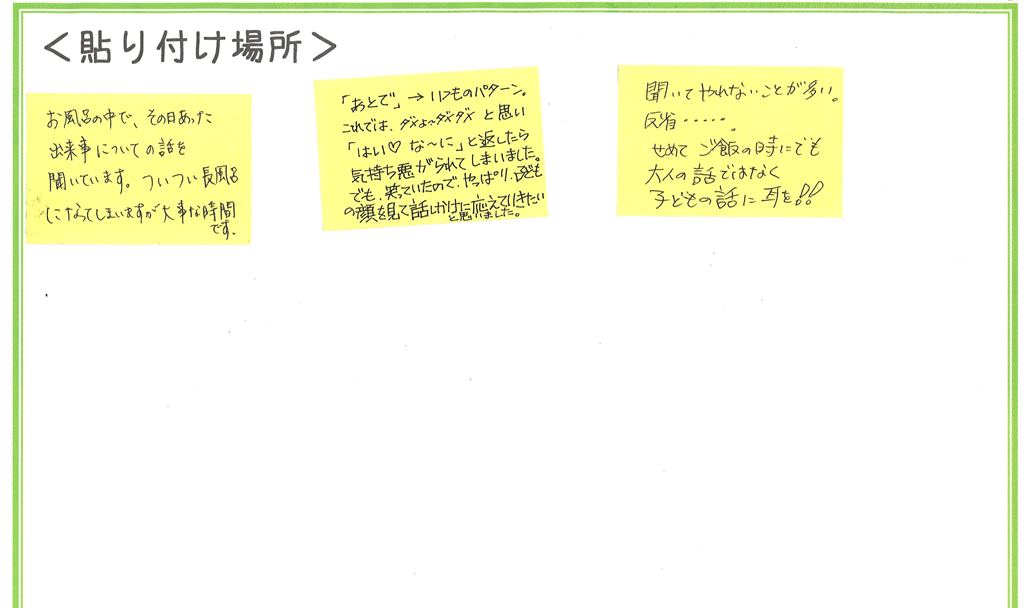 ＜貼り付け場所＞
お風呂の中で、その日あった
出来事についての話を
聞いています。ついつい長風呂
になってしまいますが大事な時間
です。
「あとで」→いつものパターン。
これでは、ダメよ〜ダメダメ と思い
「はい♡ な〜に」と返したら
気持ち悪がられてしまいました。
でも、笑っていたので、やっぱり、子ども
の顔を見て話しかけに応えていきたい
と思いました。
聞いてやれないことが多い。
反省・・・・・。
せめて ご飯の時にでも
大人の話ではなく
子どもの話に耳を!!